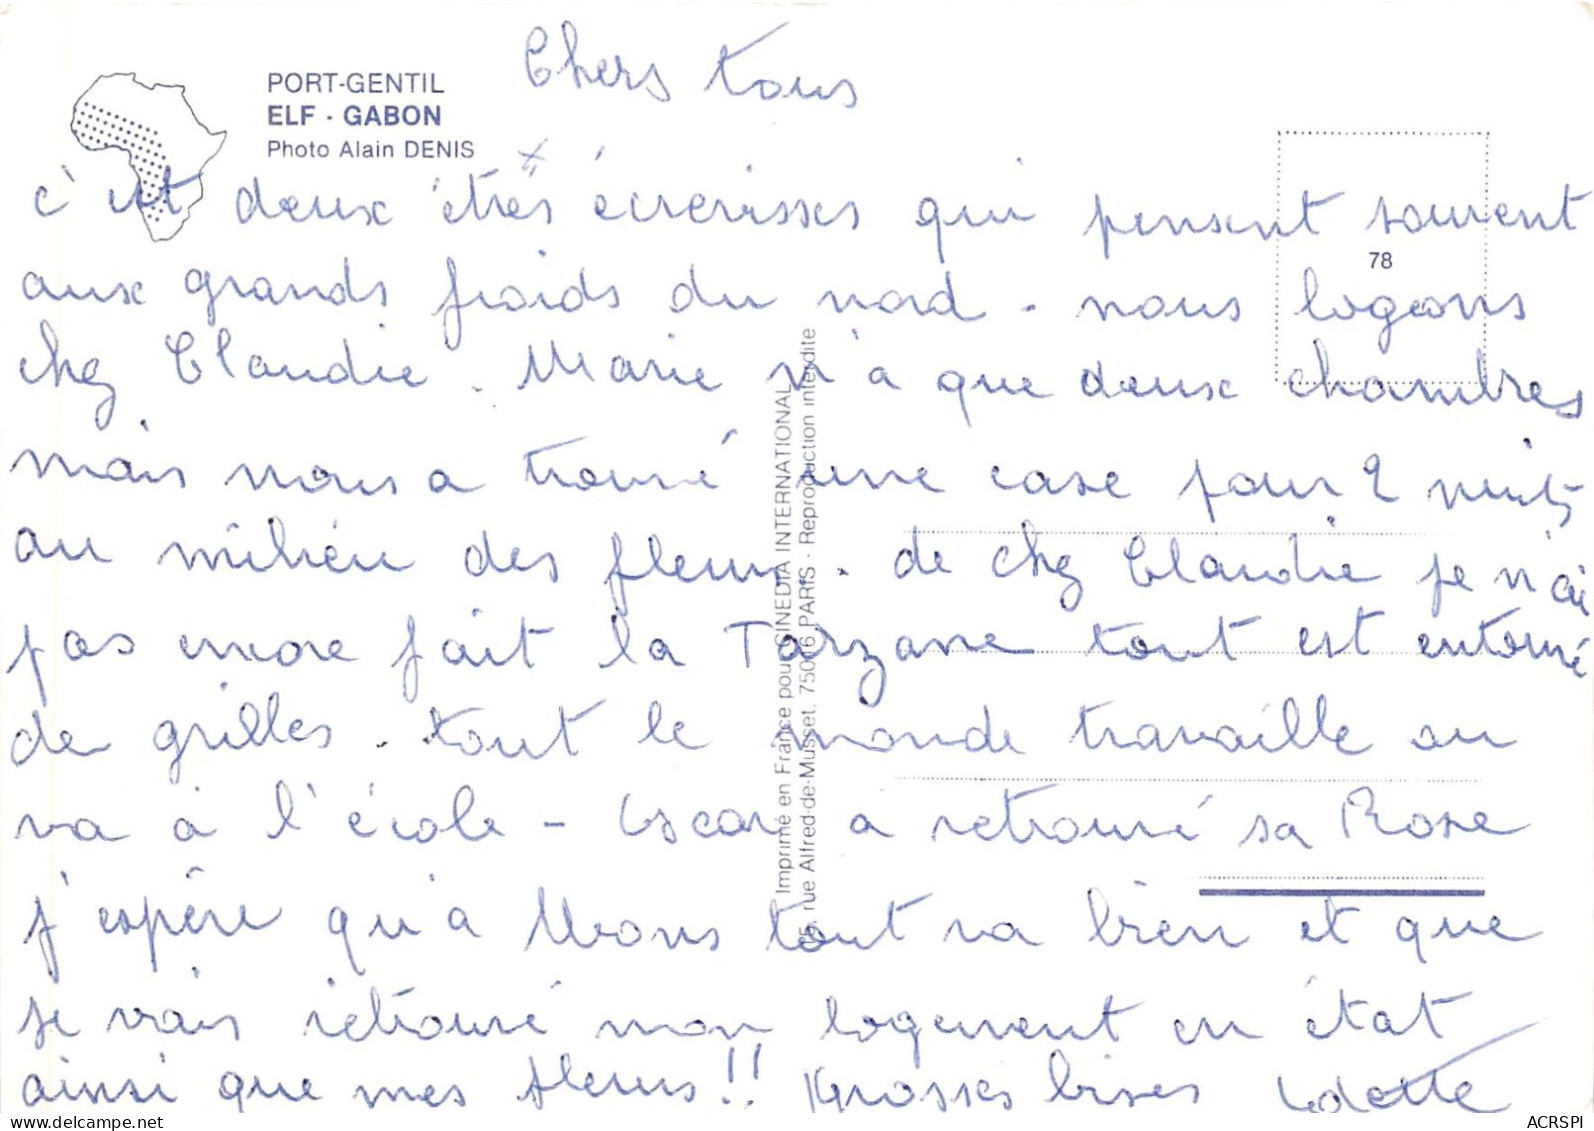 Chers tous
PORT-GENTIL
ELF - GABON
Photo Alain DENIS
c'est deux êtres écrevisses qui pensent souvent
aux grands froids du nord - nous logeons
78
chez Claudie. Marie n'a que deux chambres
mais nous a trouvé une case pour 2 nuits
au milieu des fleurs. de chez Claudie je n'ai
pas encore fait la Tarzane tout est entouré
de grilles. tout le monde travaille ou
va à l'école - Oscar a retrouvé sa Rose
j'espère qu'à Mons tout va bien et que
je vais retrouvé mon logement en état
ainsi que mes fleurs!! Grosses bises Odette
Imprimé en France pour CINEDIA INTERNATIONAL
rue Alfred-de-Musset. 75016 PARIS - Reproduction interdite
ACRSPI